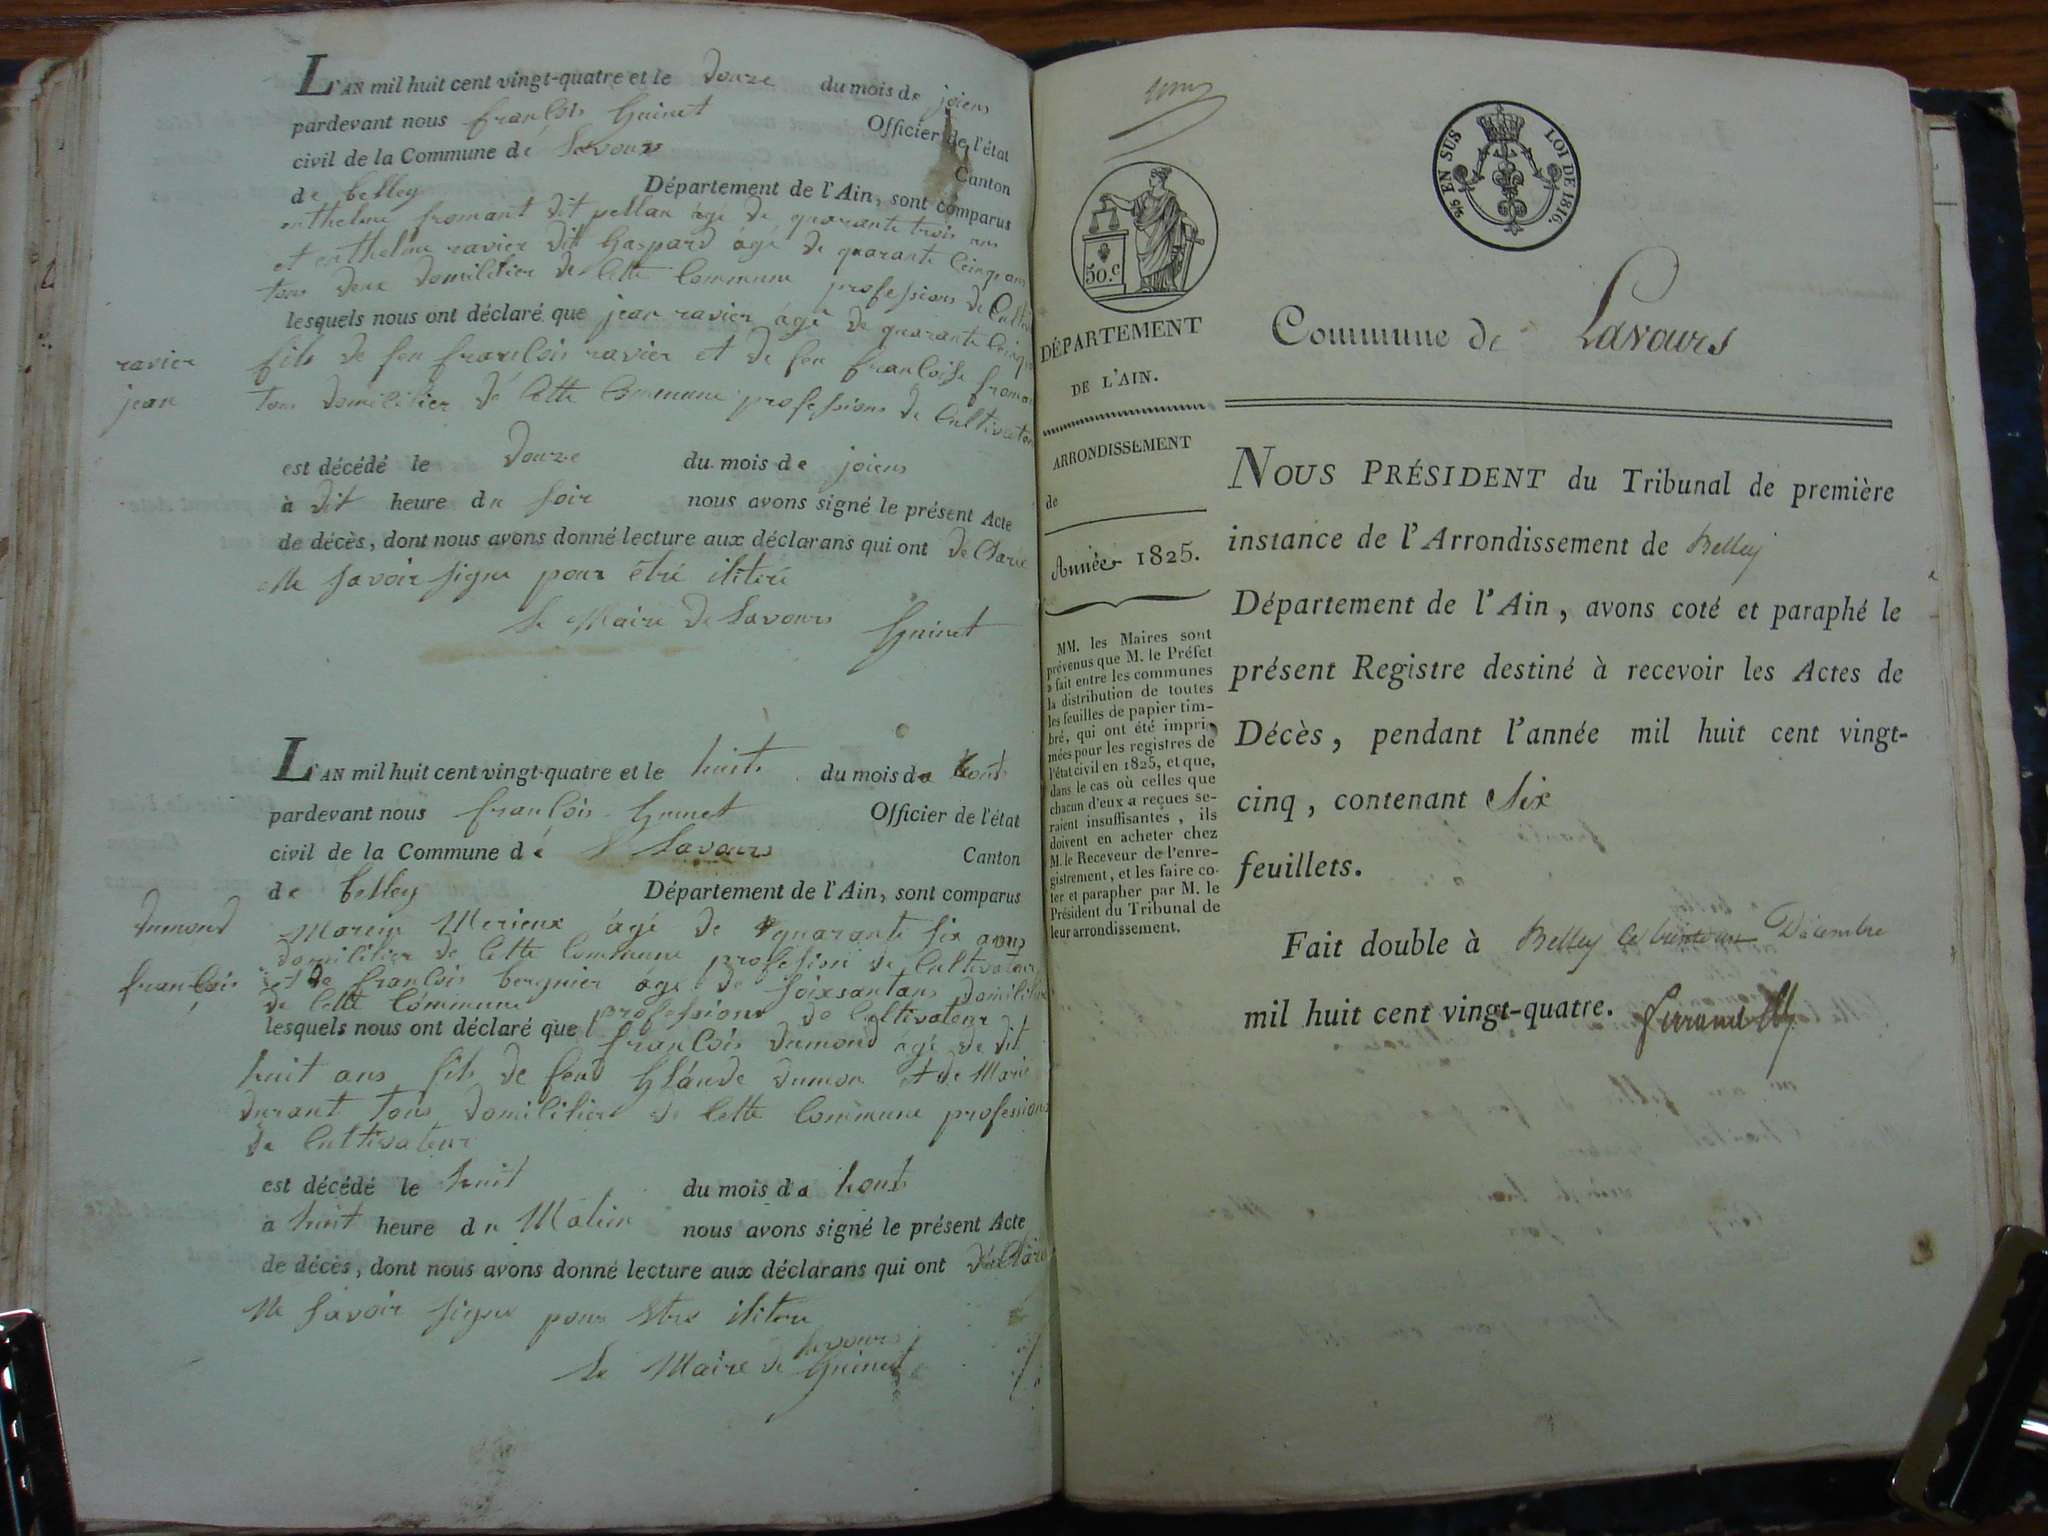 L'AN mil huit cent vingt-quatre et le douze du mois de joiens
pardevant nous françois Guinet Officier de l'état
civil de la Commune dé Lavours Canton
de belley Département de l'Ain, sont comparus
enthelme fromant dit pellan âgé de quarante trois ans
et enthelme ravier dit Gaspard âgé de quarante Cinq ans
tous deux domicilier de Cette Commune professions de Culti
lesquels nous ont déclaré que jean ravier âgé de quarante Cinq
ravier
jean
fils de feu françois ravier et de feu françoise froman
tous domicilier de Cette Commune professions de Cultivateur
est décédé le douze du mois de joiens
à dit heure du soir nous avons signé le présent Acte
de décès, dont nous avons donné lecture aux déclarans qui ont de Claré
Ne savoir signe pour étré ilitéré
Le Maire de Lavours Guinet
L'AN mil huit cent vingt-quatre et le huit du mois de houts
pardevant nous françois Guinet Officier de l'état
civil de la Commune dé Lavours Canton
de belley Département de l'Ain, sont comparus
dumond
françois
Merieux âgé de quarante six ans
domicilier de Cette Commune profession de Cultivateur
et de françois bergnier âgé de soixsantans domicilier
de Cette Commune professions de Cultivateur
lesquels nous ont déclaré que françois dumond âgé de dit
huit ans fils de feu Glaude dumon et de Marie
durant tous domicilier de Cette Commune professions
de Cultivateur
est décédé le huit du mois de houts
à huit heure du Matin nous avons signé le présent Acte
de décès, dont nous avons donné lecture aux déclarans qui ont déClaré
Ne savoir signe pour Etre iliteré
Lavours
Le Maire de Guinet
5/6 EN SUS LOI DE 1816.
50.c
DÉPARTEMENT
DE L'AIN.
ARRONDISSEMENT
de
Année 1825.
MM. les Maires sont
prévenus que M. le Préfet
a fait entre les communes
la distribution de toutes
les feuilles de papier tim-
bré, qui ont été impri-
mées pour les registres de
l'état civil en 1825, et que,
dans le cas où celles que
chacun d'eux a reçues se-
raient insuffisantes, ils
doivent en acheter chez
M. le Receveur de l'enre-
gistrement, et les faire co-
ter et parapher par M. le
Président du Tribunal de
leur arrondissement.
Commune de Lavours
NOUS PRÉSIDENT du Tribunal de première
instance de l'Arrondissement de Belley
Département de l'Ain, avons coté et paraphé le
présent Registre destiné à recevoir les Actes de
Décès, pendant l'année mil huit cent vingt-
cinq, contenant Six
feuillets.
Fait double à Belley Décembre
mil huit cent vingt-quatre.